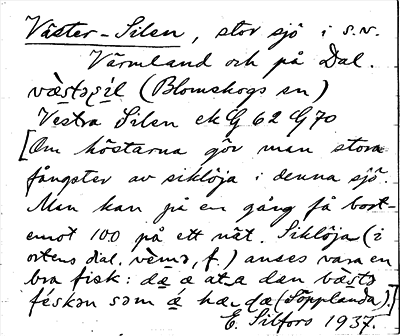 Väster-Silen, stor sjö i s.v.
Värmland och på Dal.
(Blomskogs sn)
Västra Silen ek G 62 G 70
[Om höstarna gör man stora
fångster av siklöja i denna sjö.
Man kan på en gång få bort-
emot 100 på ett nät. Siklöja (i
ortens dial. vèmə, f.) anses vara en
bra fisk: dæ æ at a den
féskən som á hæ (Sopplanda).]
E. Silfors 1937.